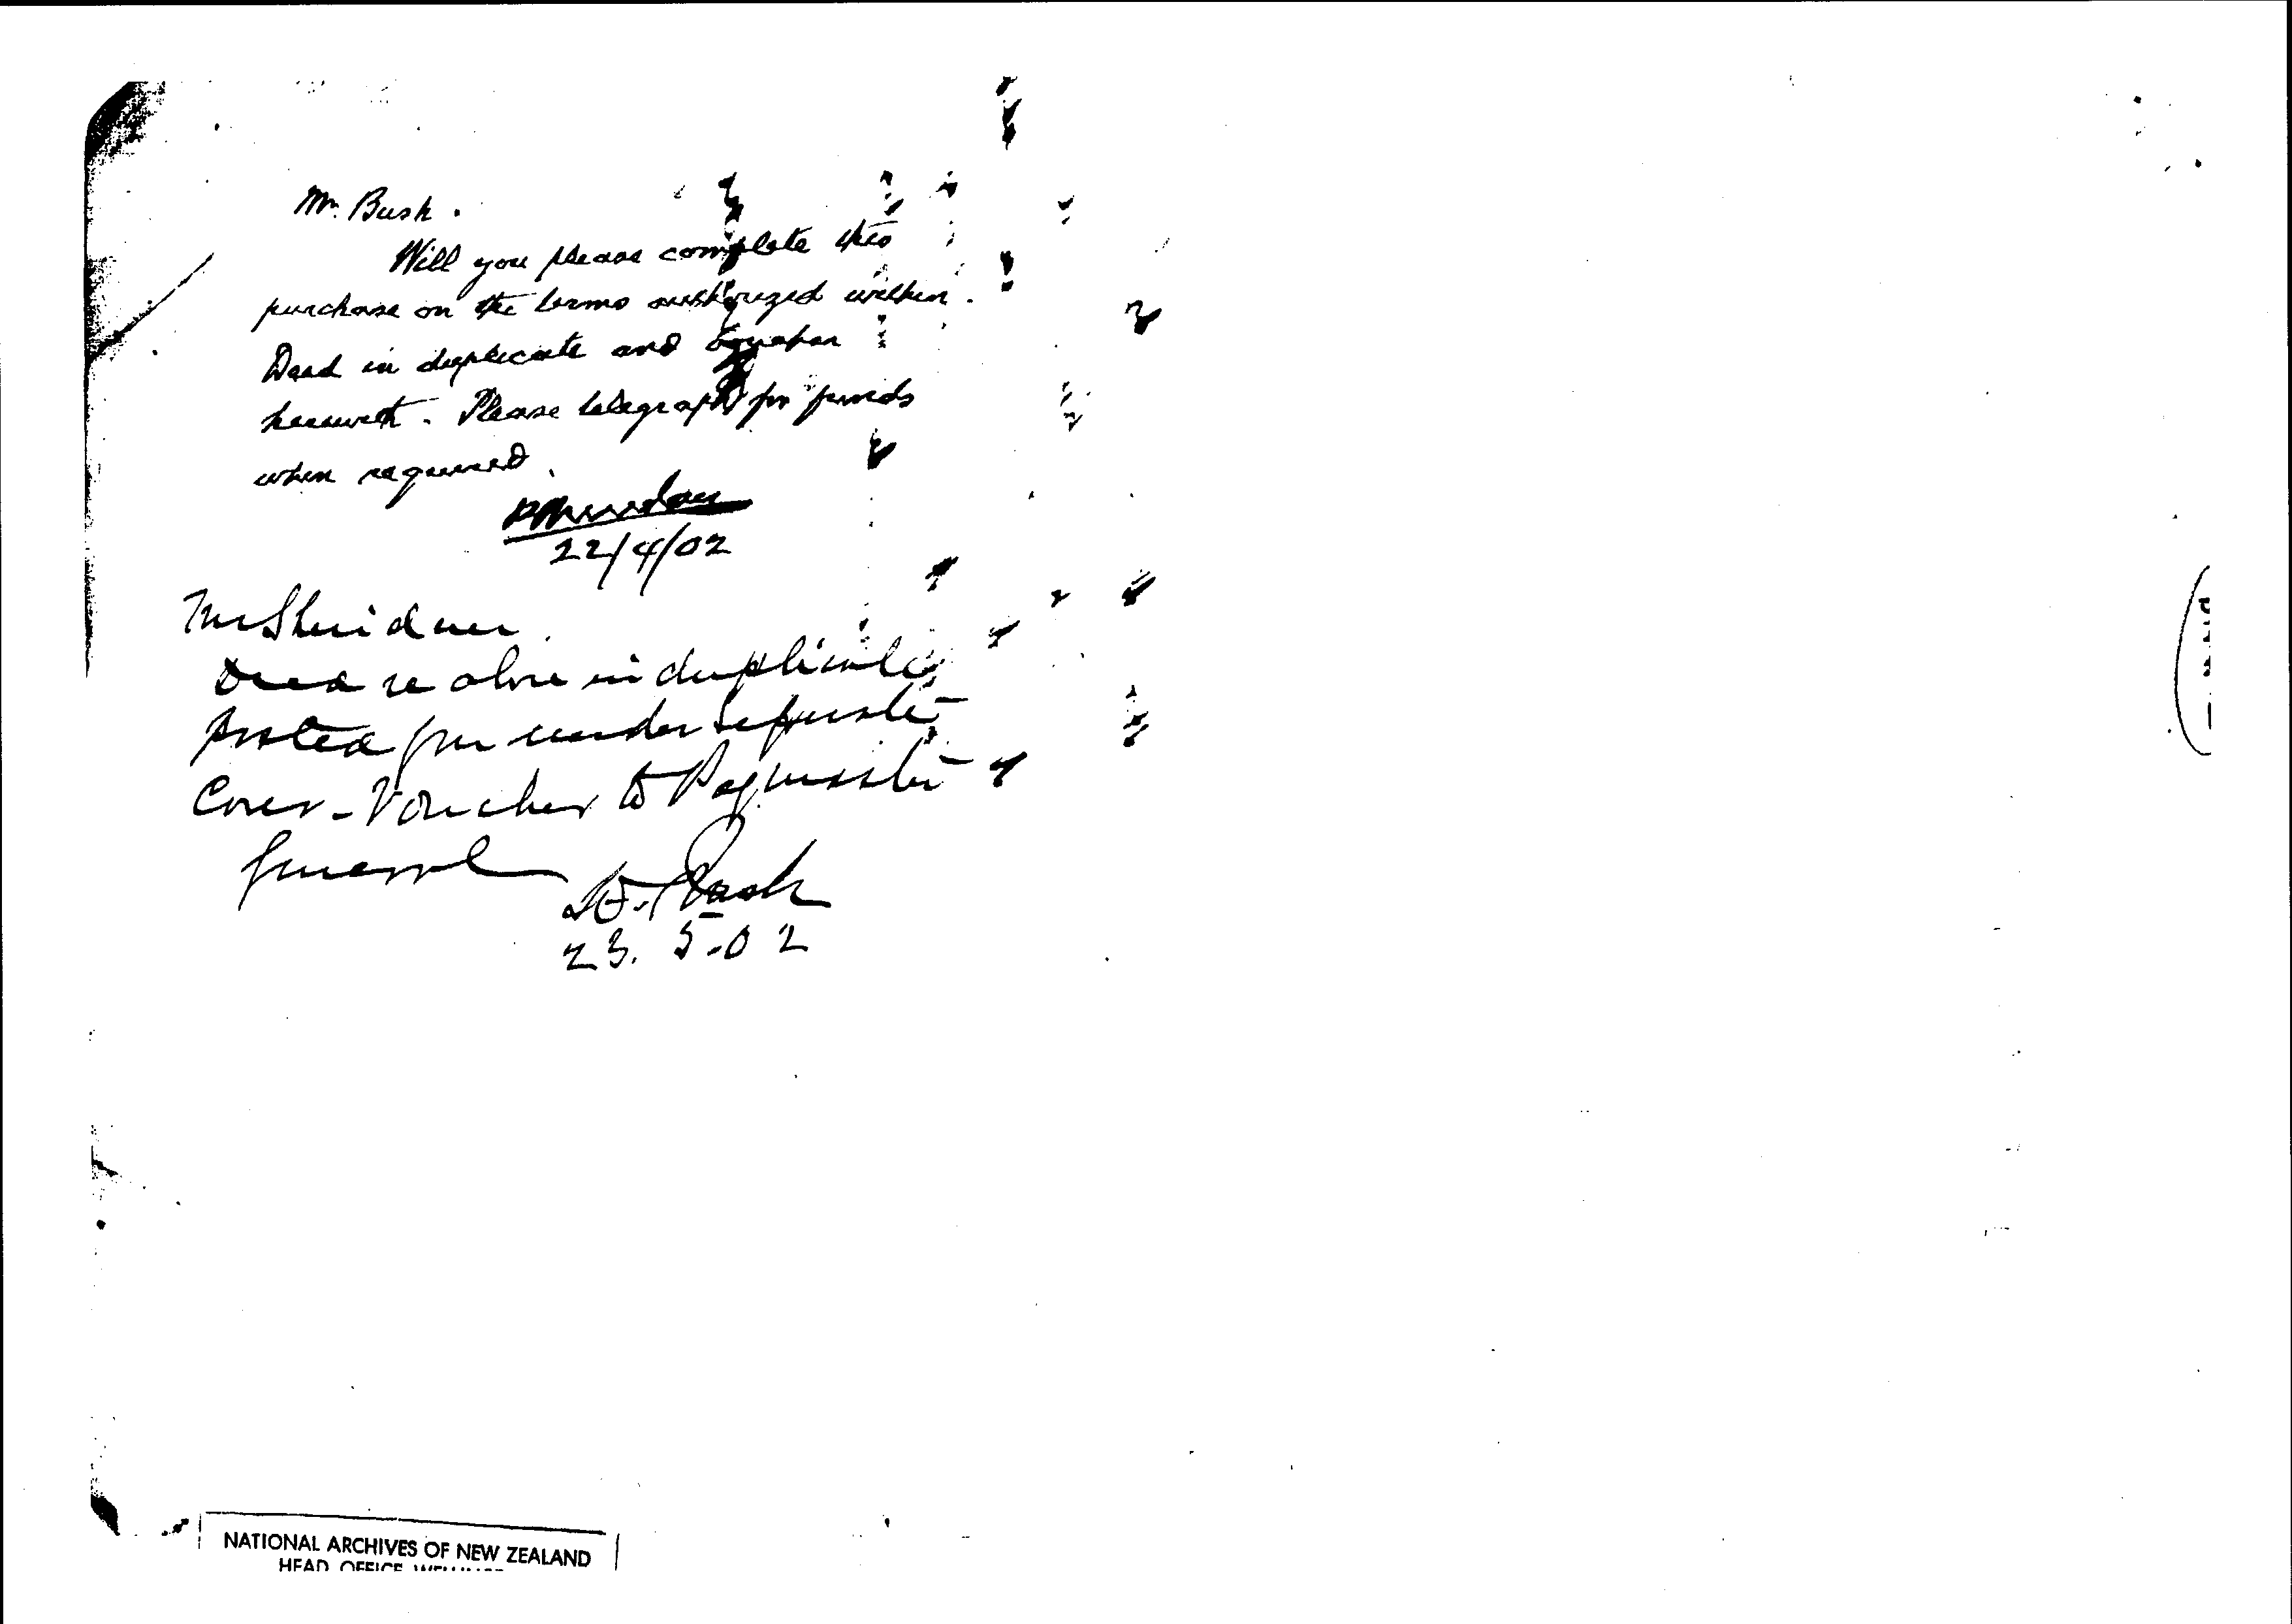 Mr. Bush.
Will you please complete this
purchase on the terms authorized within.
Deed in duplicate and
herewith. Please telegraph for funds
when required.
22/4/02
Mr Sheridan
Deed re above in duplicate
posted you under separate
Cover - Voucher to Paymaster
General
W. Bush
23.5.02
NATIONAL ARCHIVES OF NEW ZEALAND
HEAD OFFICE